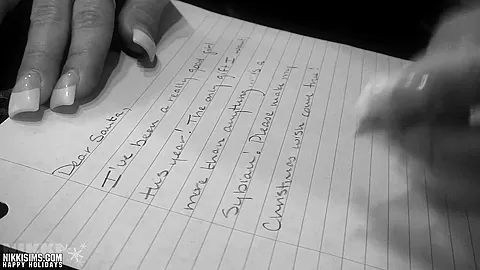 Dear Santa,
I've been a really good girl
this year! The only gift I want
more than anything, is a
Sybian. Please make my
Christmas wish come true!
NIKKI
NIKKISIMS.COM
HAPPY HOLIDAYS